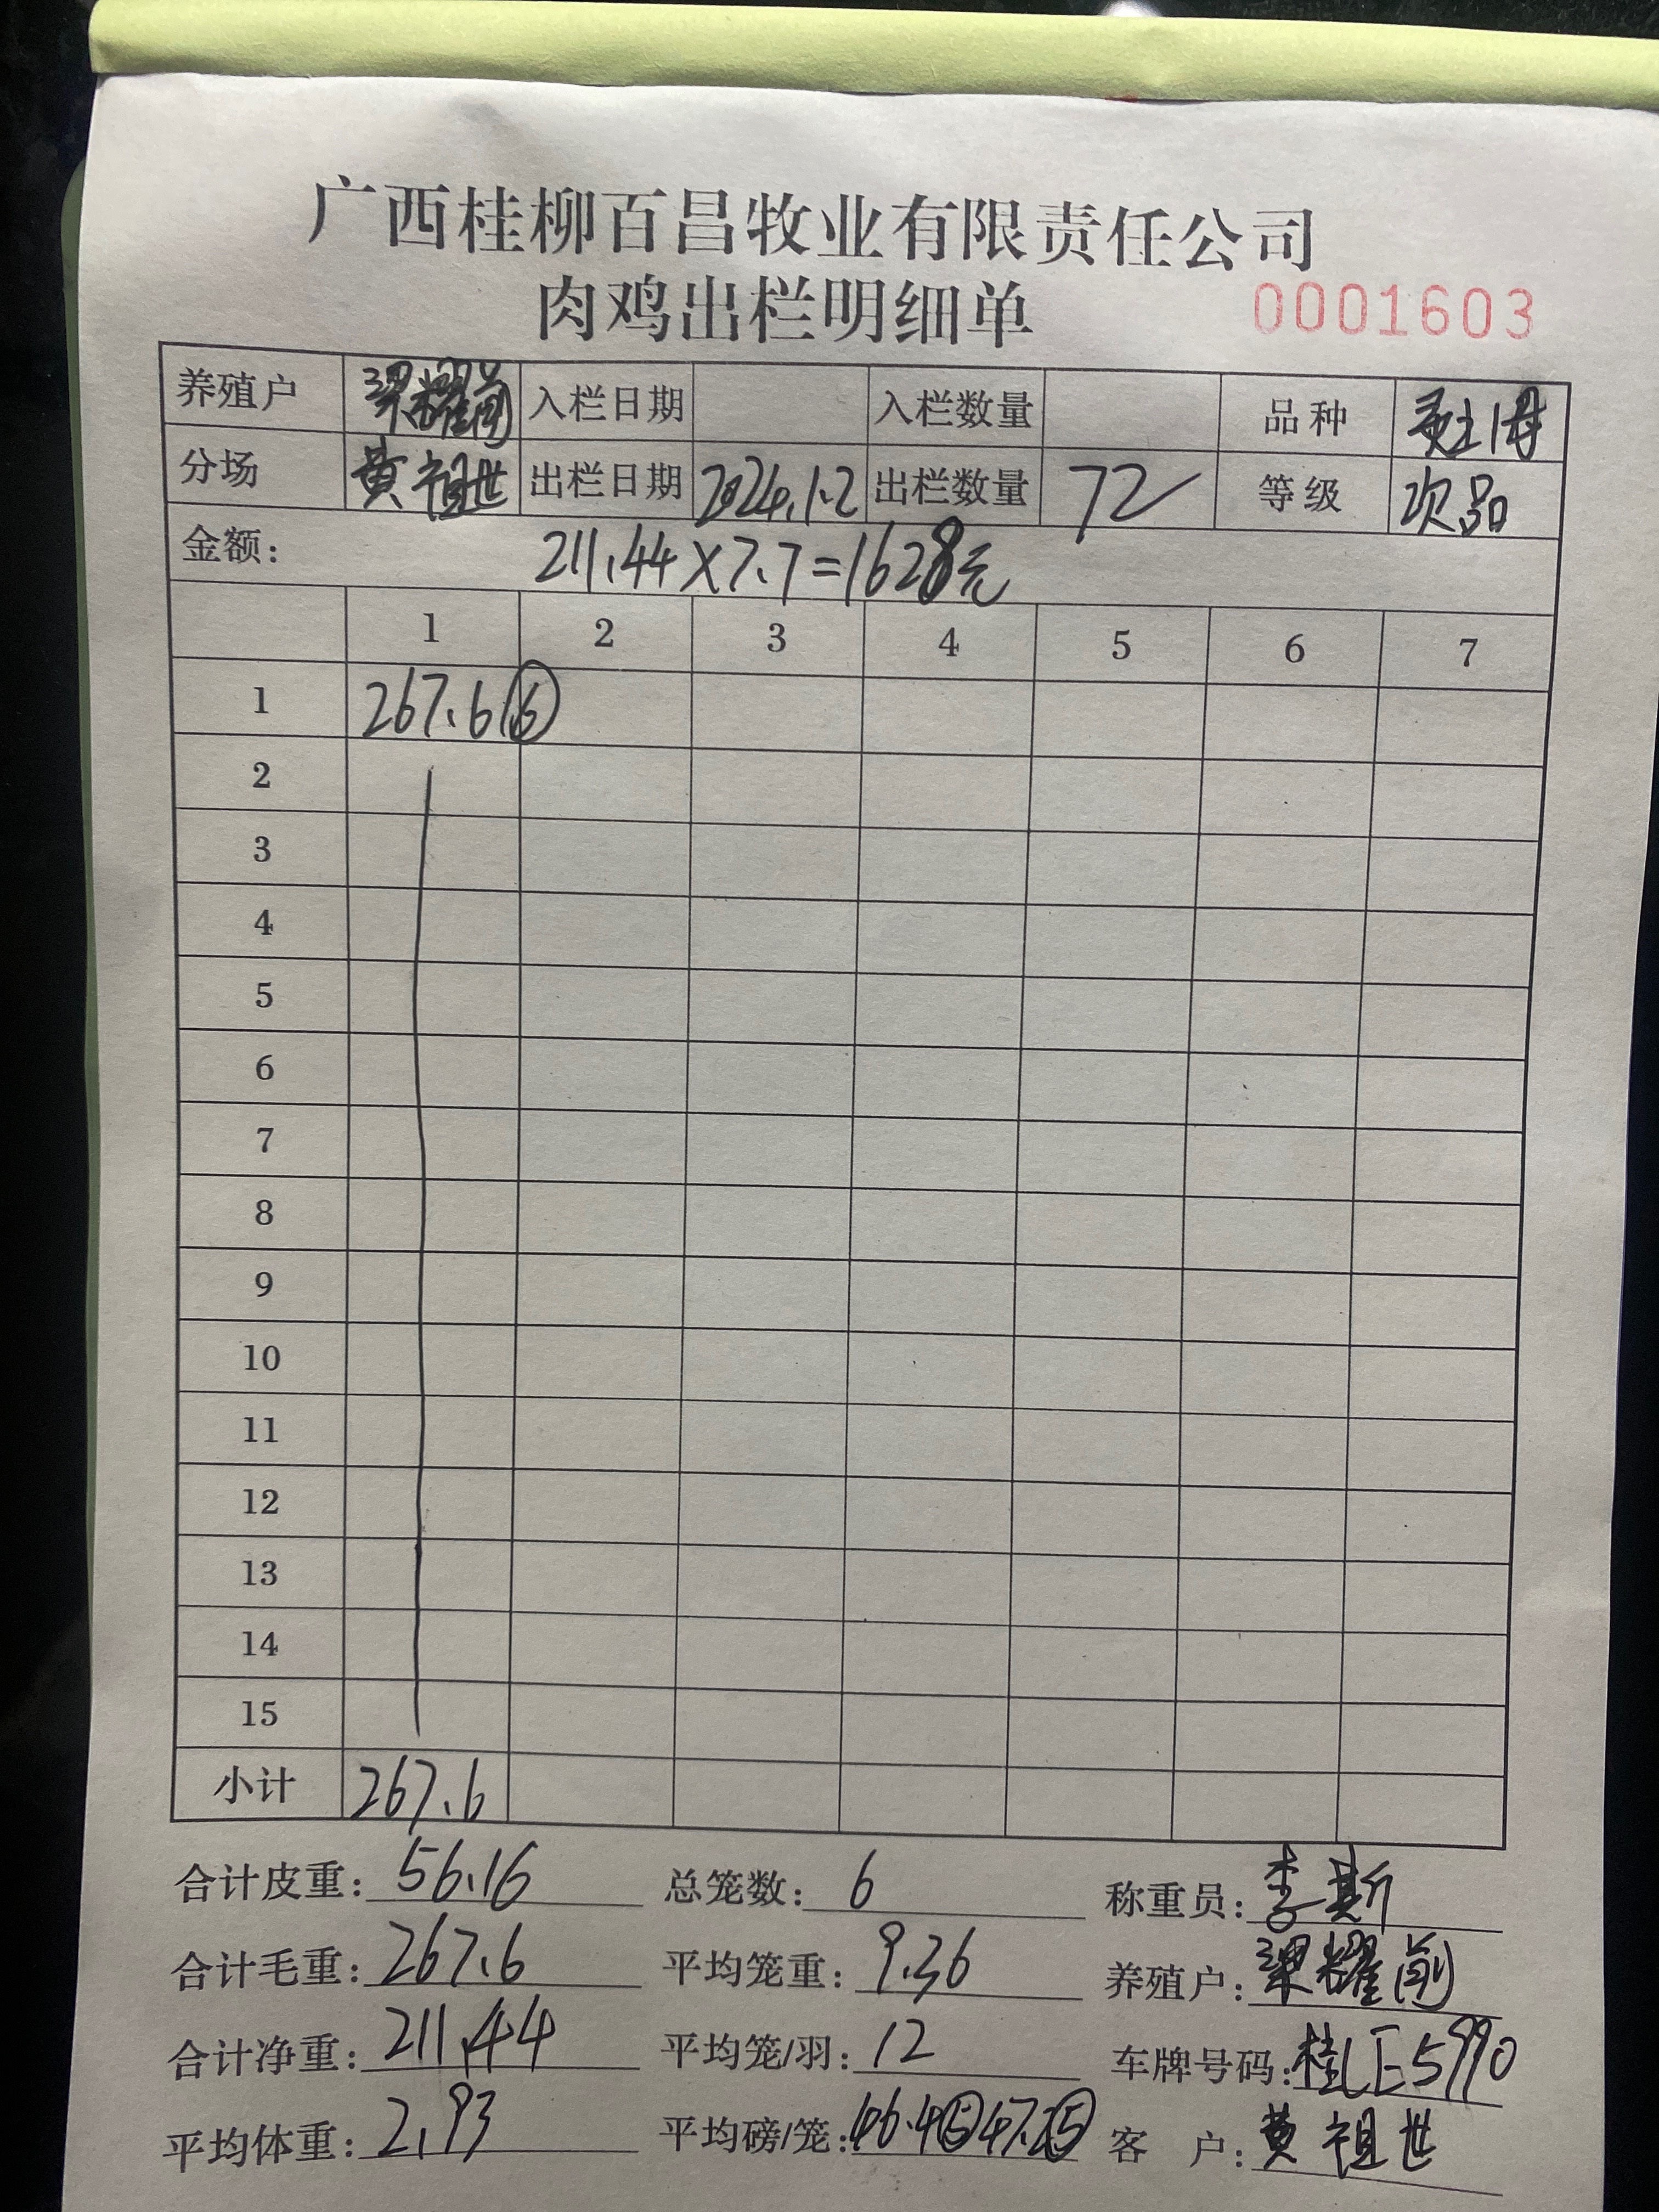 广西桂柳百昌牧业有限责任公司
肉鸡出栏明细单 0001603
养殖户 梁耀前 入栏日期 入栏数量 品种 土
分场 黄祖世 出栏日期 2024.1.2 出栏数量 72 等级 次品
金额: 211.44×7.7=1628元
1 2 3 4 5 6 7
1 267.6 ⑥
2
3
4
5
6
7
8
9
10
11
12
13
14
15
小计 267.6
合计皮重: 56.16 总笼数: 6 称重员: 李斯
合计毛重: 267.6 平均笼重: 9.36 养殖户: 梁耀前
合计净重: 211.44 平均笼/羽: 12 车牌号码: 桂E5990
平均体重: 2.93 平均磅/笼: 46.4⑤ 客户: 黄祖世